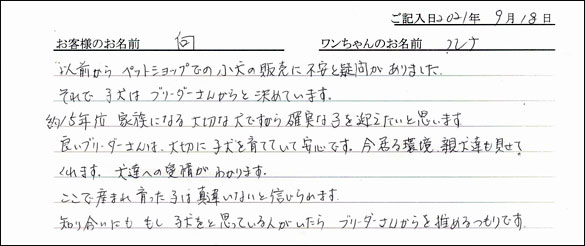 ご記入日2021年 9月18日
お客様のお名前 向 ワンちゃんのお名前 ルナ
以前から ペットショップでの小犬の販売に不安と疑問がありました。
それで 子犬は ブリーダーさんからと決めています。
約15年位 家族になる大切な犬ですから 確実な子を迎えたいと思います
良いブリーダーさんは、大切に子犬を育てていて安心です。今居る環境、親犬達も見せて
くれます。犬達への愛情がわかります。
ここで産まれ育った子は 間違いないと信じられます。
知り合いにも もし 子犬をと思っている人がいたら ブリーダーさんからを推めるつもりです。